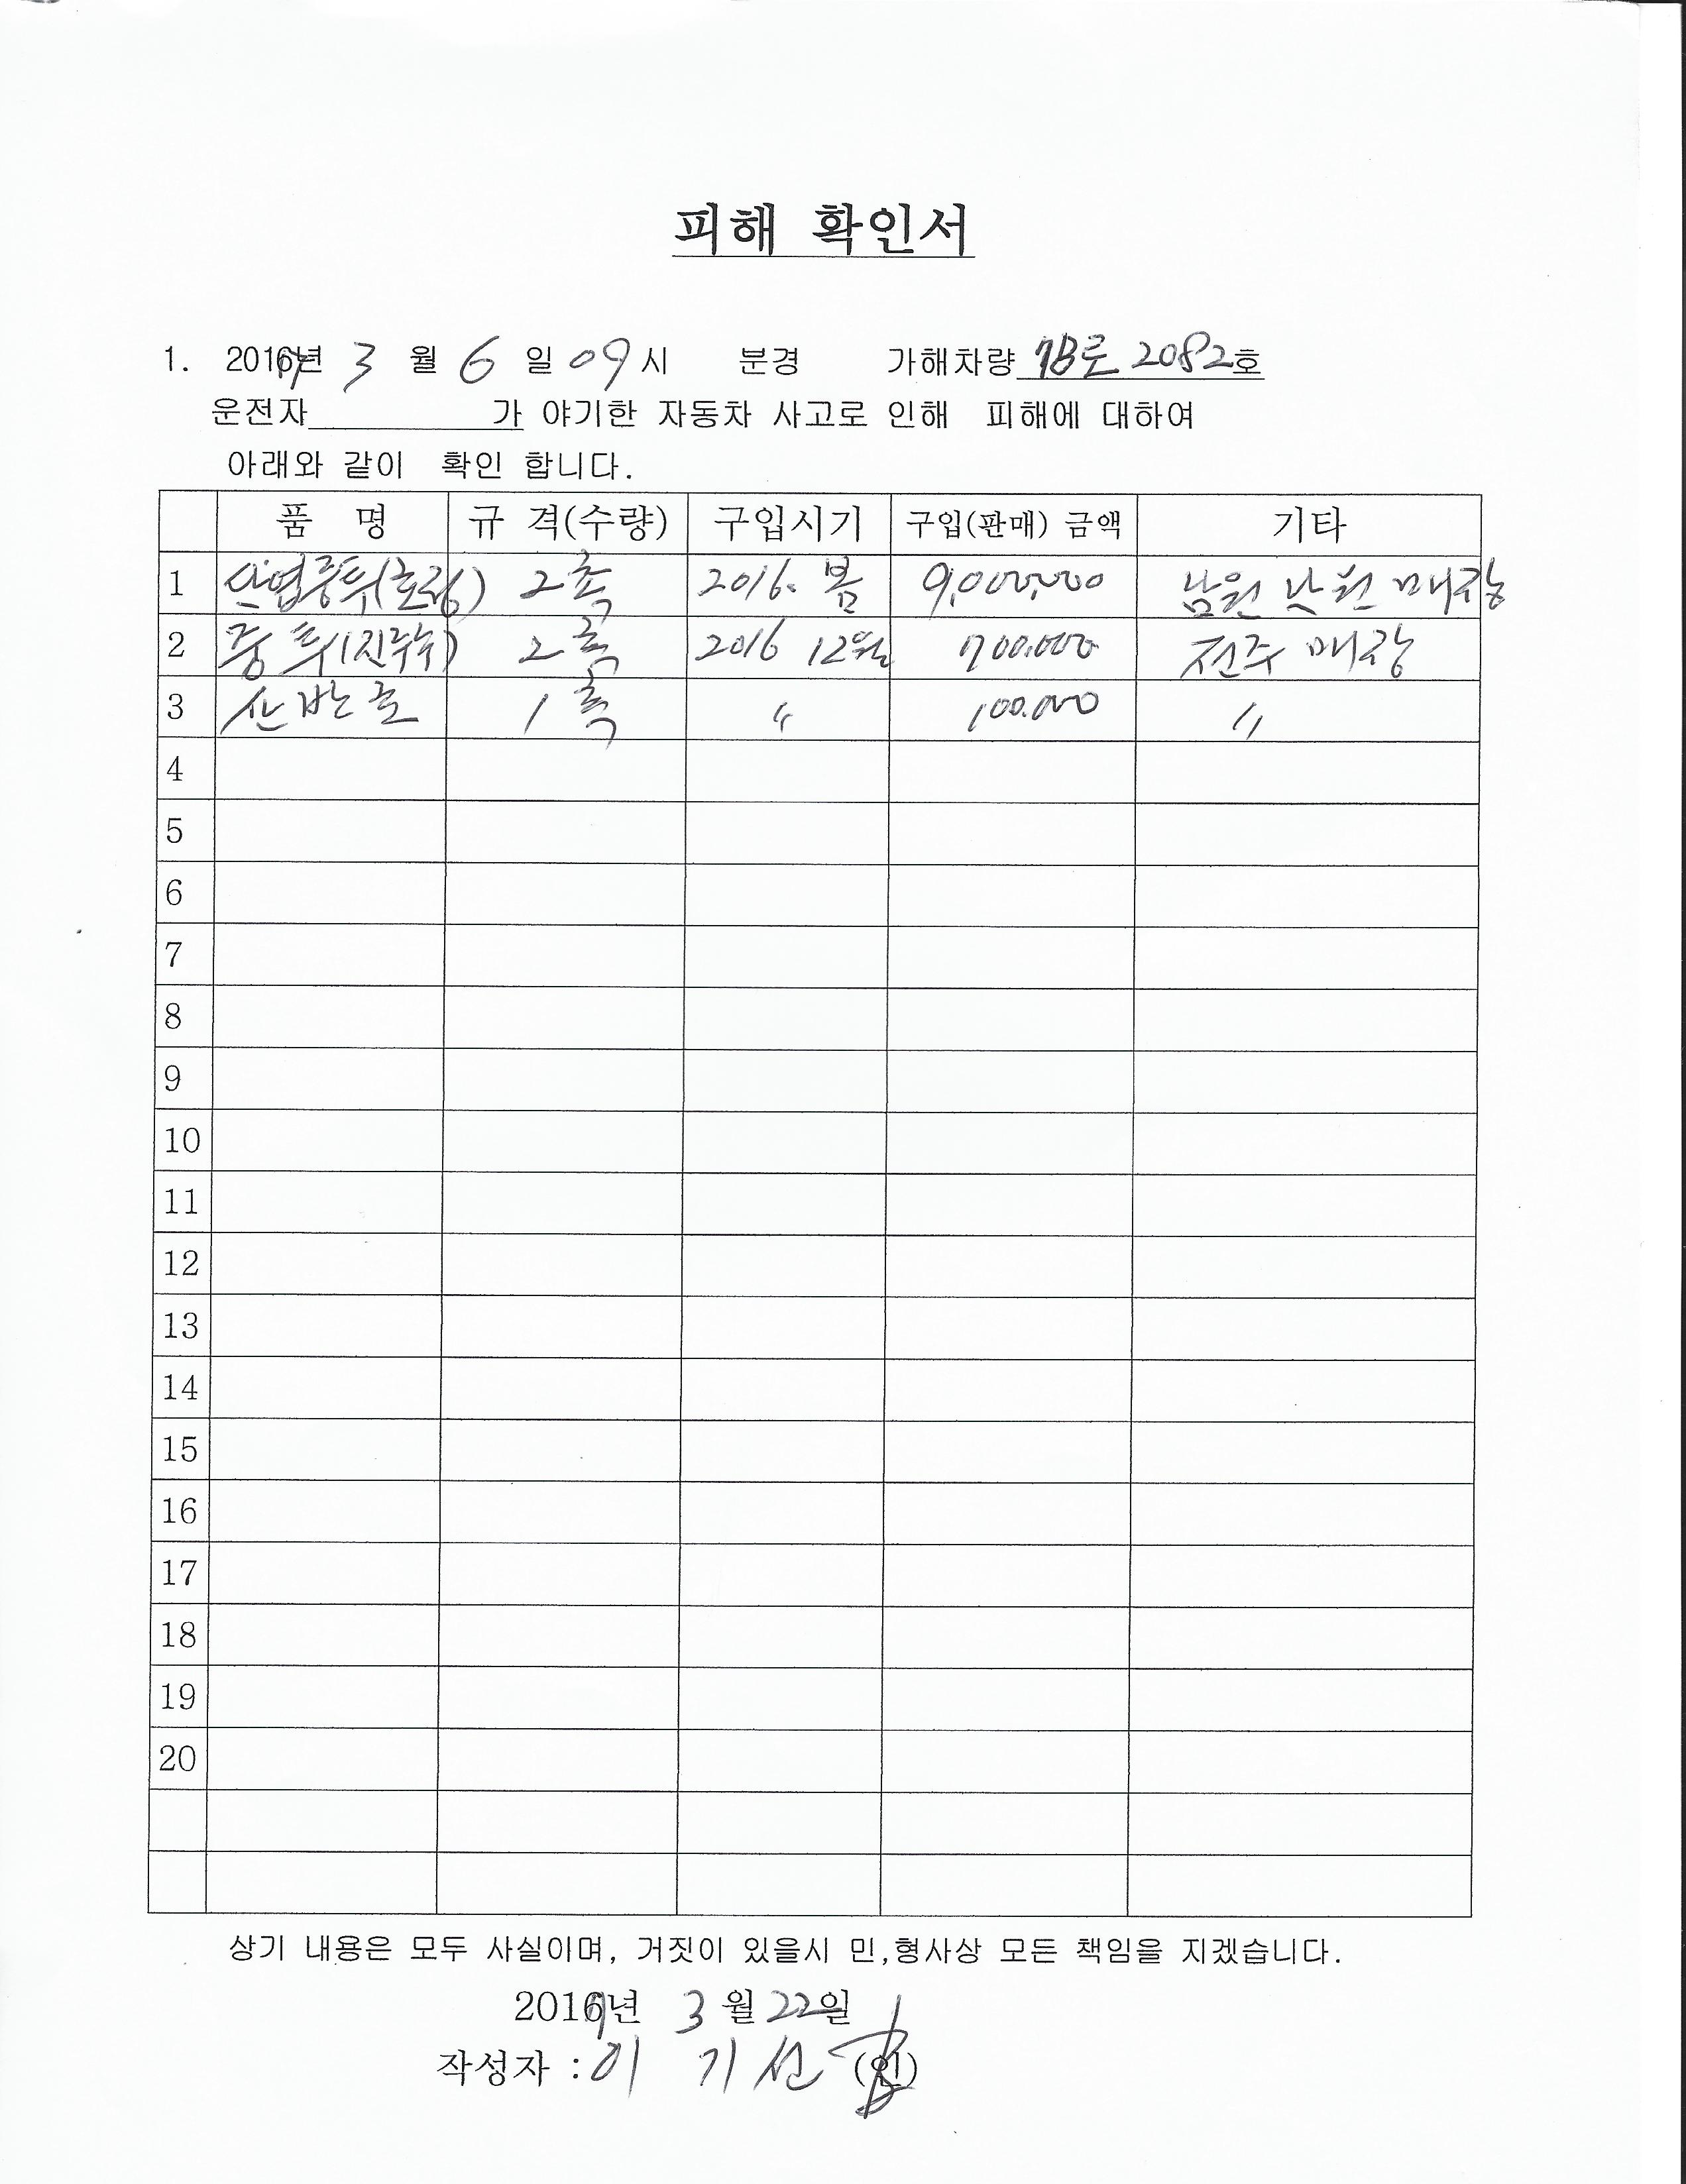 피해 확인서
1. 2017년 3 월 6 일 09 시 분경 가해차량 2082호
운전자 가 야기한 자동차 사고로 인해 피해에 대하여
아래와 같이 확인 합니다.
품 명 규 격(수량) 구입시기 구입(판매) 금액 기타
1 단엽중투(호림) 2촉 2016. 봄 9,000,000 남원 난원 매장
2 중투(진주수) 2촉 2016 12월 700.000 전주 매장
3 산반호 1촉 〃 100.000 〃
4
5
6
7
8
9
10
11
12
13
14
15
16
17
18
19
20
상기 내용은 모두 사실이며, 거짓이 있을시 민,형사상 모든 책임을 지겠습니다.
2017년 3 월 22일
작성자 : 이 기 선 (인)